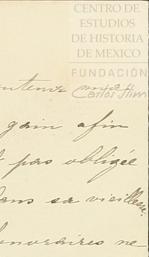 CENTRO DE
ESTUDIOS
DE HISTORIA
DE MÉXICO
FUNDACIÓN
Carlos Slim
gain afin
pas obligée
dans sa vieillesse
honoraires ne